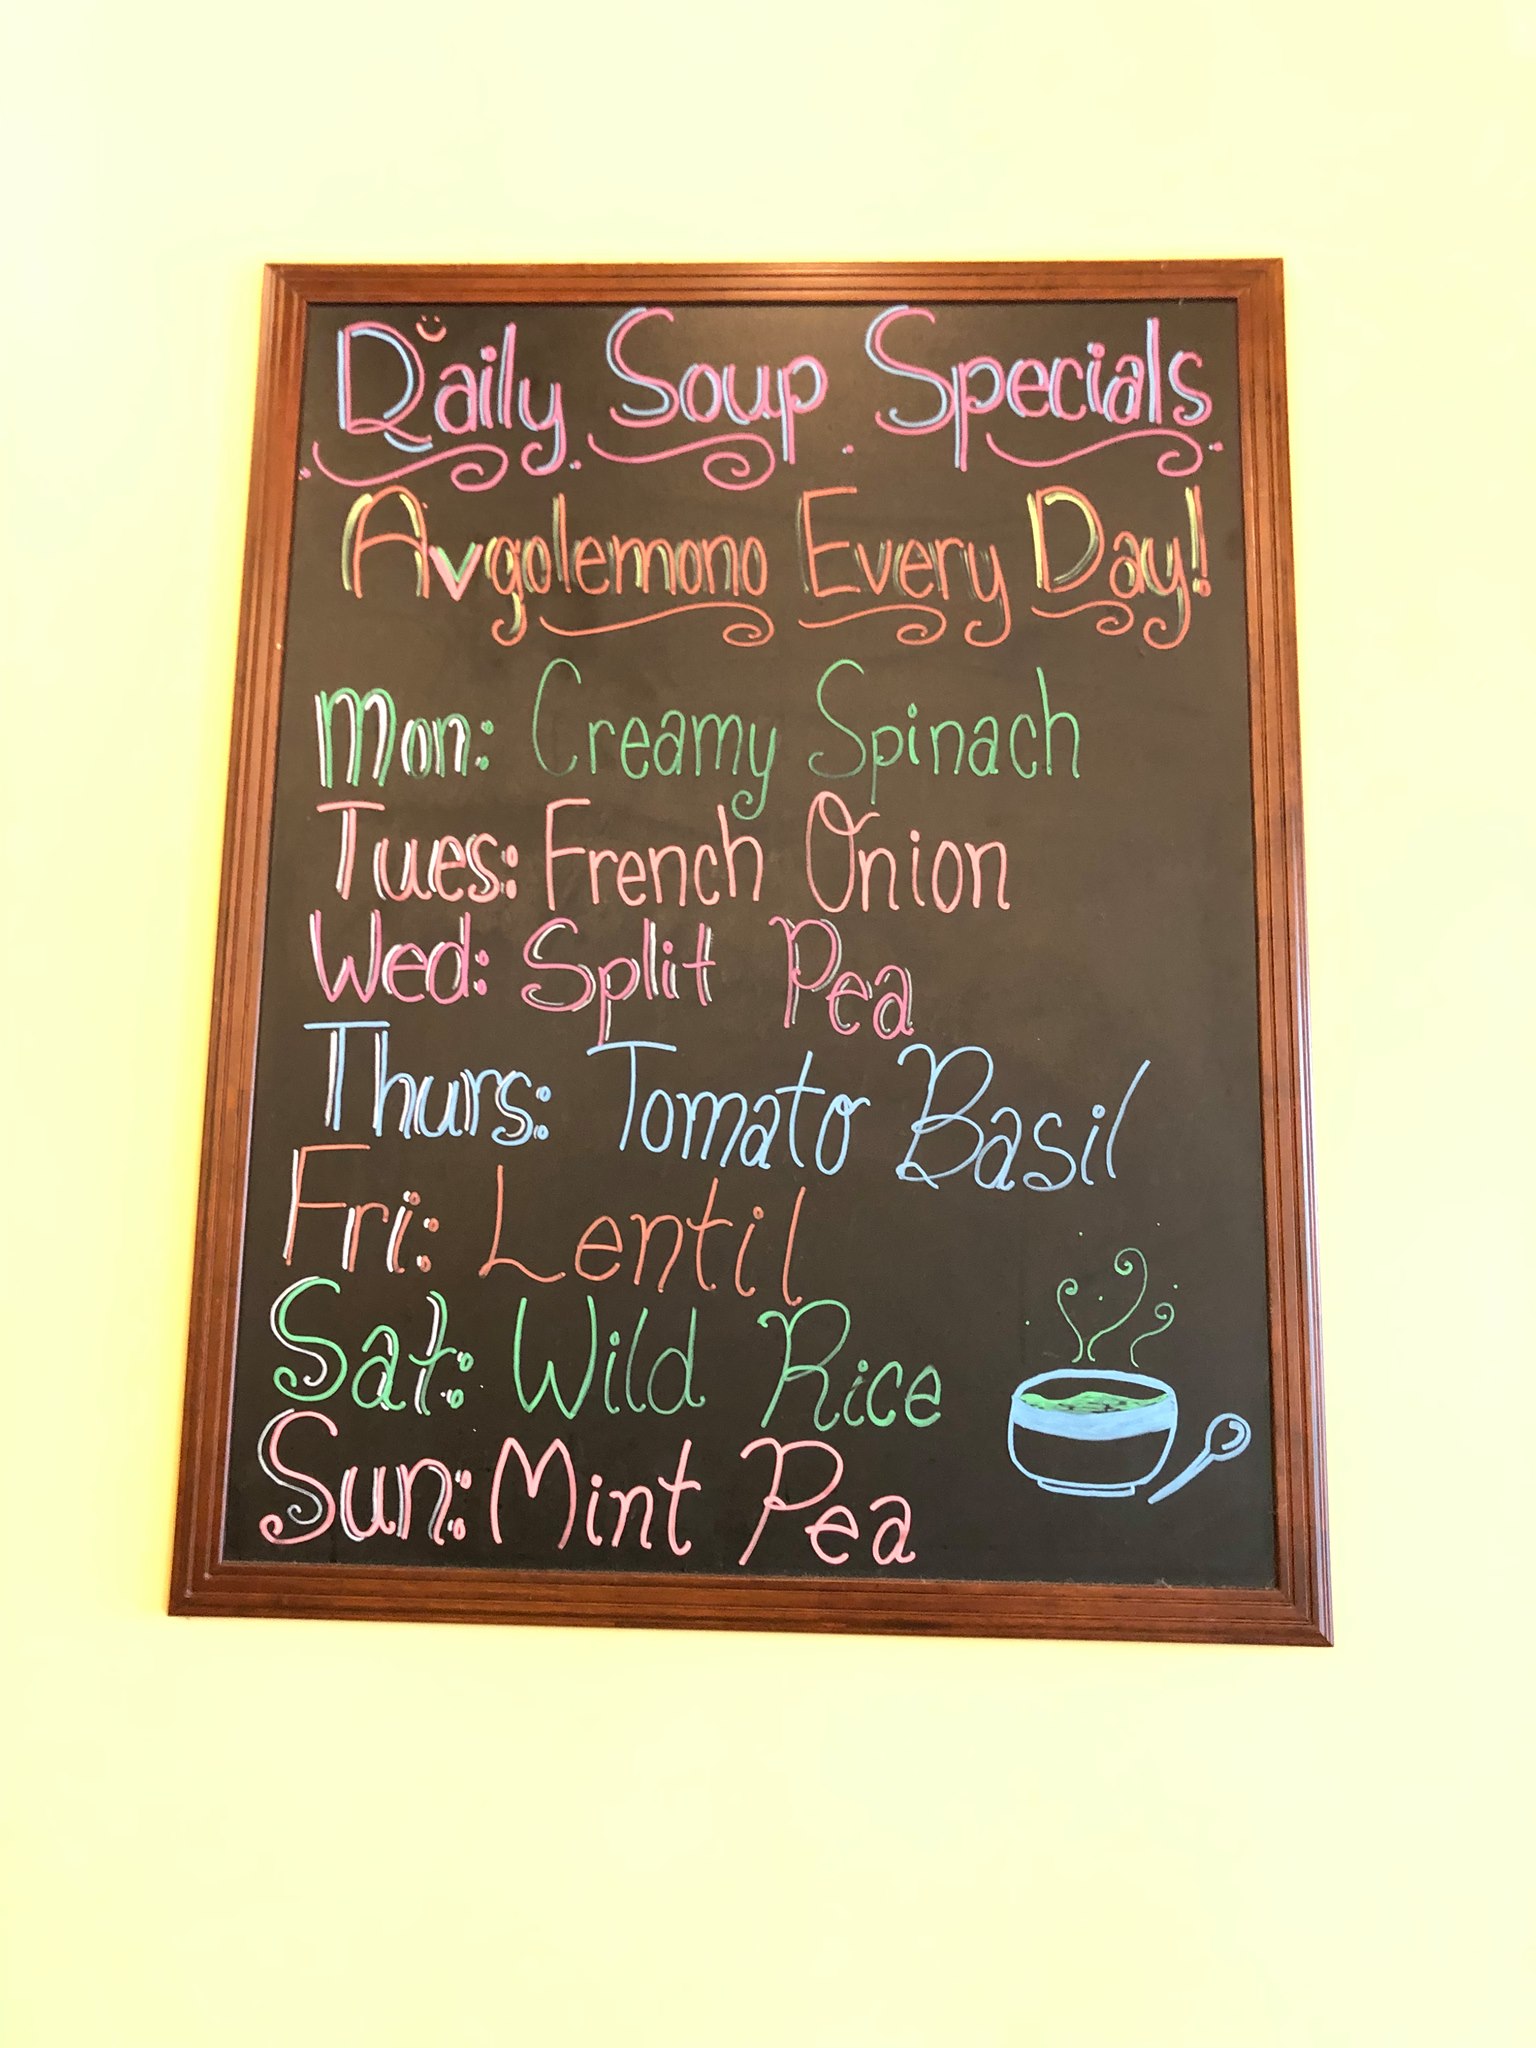 Daily Soup Specials
Avgolemono Every Day!
Mon: Creamy Spinach
Tues: French Onion
Wed: Split Pea
Thurs: Tomato Basil
Fri: Lentil
Sat: Wild Rice
Sun: Mint Pea